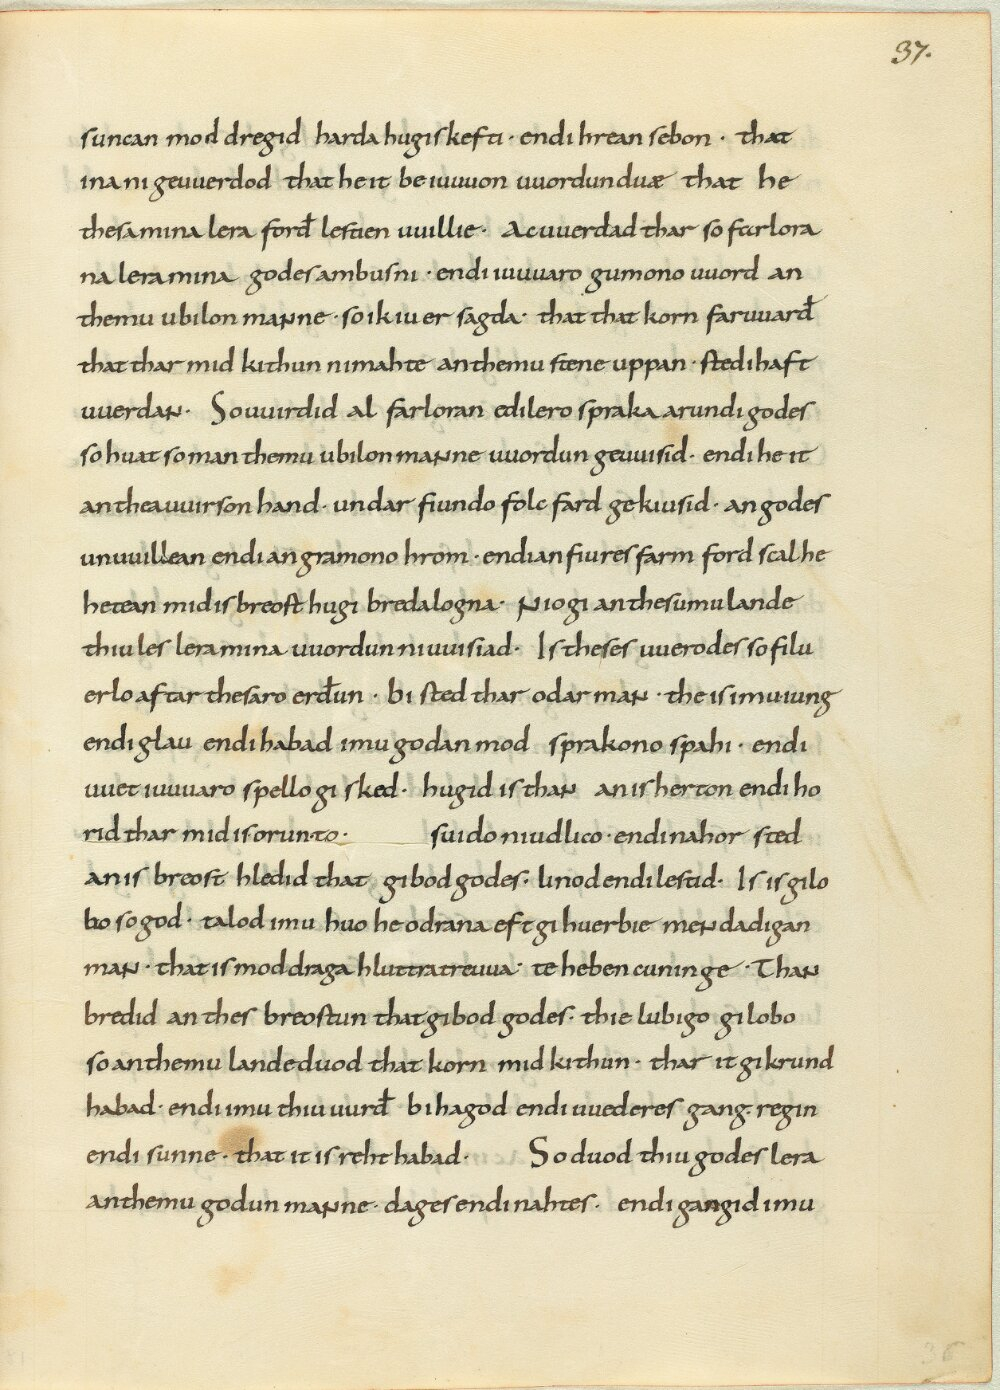 37.
suncan mod dregid harda hugiskefti · endi hrean sebon · that
ina ni geuuerdod that he it be iuuuon uuordun duæ that he
thesa mina lera forđ lestien uuillie · Ac uuerdad thar so farlora
na lera mina godes ambusni · endi iuuuaro gumono uuord an
themu ubilon manne · so ik iu er sagda · that that korn faruuarđ
that thar mid kithun ni mahte an themu stene uppan · stedihaft
uuerdan · So uuirdid al farloran edilero spraka arundi godes
so huat so man themu ubilon manne uuordun geuuisid · endi he it
an thea uuirson hand · undar fiundo folc fard gekiusid · an godes
unuuillean endi an gramono hrom · endi an fiures farm ford scal he
hetean mid is breosthugi breda logna · Nio gi an thesumu lande
thiu les lera mina uuordun ni uuisiad · Is theses uuerodes so filu
erlo aftar thesaro erđun · bi sted thar odar man · the is imu iung
endi glau endi habad imu godan mod sprakono spahi · endi
uuet iuuuaro spello gisked · hugid is than an is herton endi ho
rid thar mid is orun to · suido niudlico · endi nahor sted
an is breost hledid that gibod godes · linod endi lestid · Is is gilo
bo so god · talod imu huo he odrana eft gihuerbie mendadigan
man · that is mod draga hluttra treuua · te hebencuninge · Than
bredid an thes breostun that gibod godes · thie lubigo gilobo
so an themu lande duod that korn mid kithun · thar it gikrund
habad · endi imu thiu uurđ bihagod endi uuederes gang · regin
endi sunne · that it is reht habad · So duod thiu godes lera
an themu godun manne · dages endi nahtes · endi gangid imu